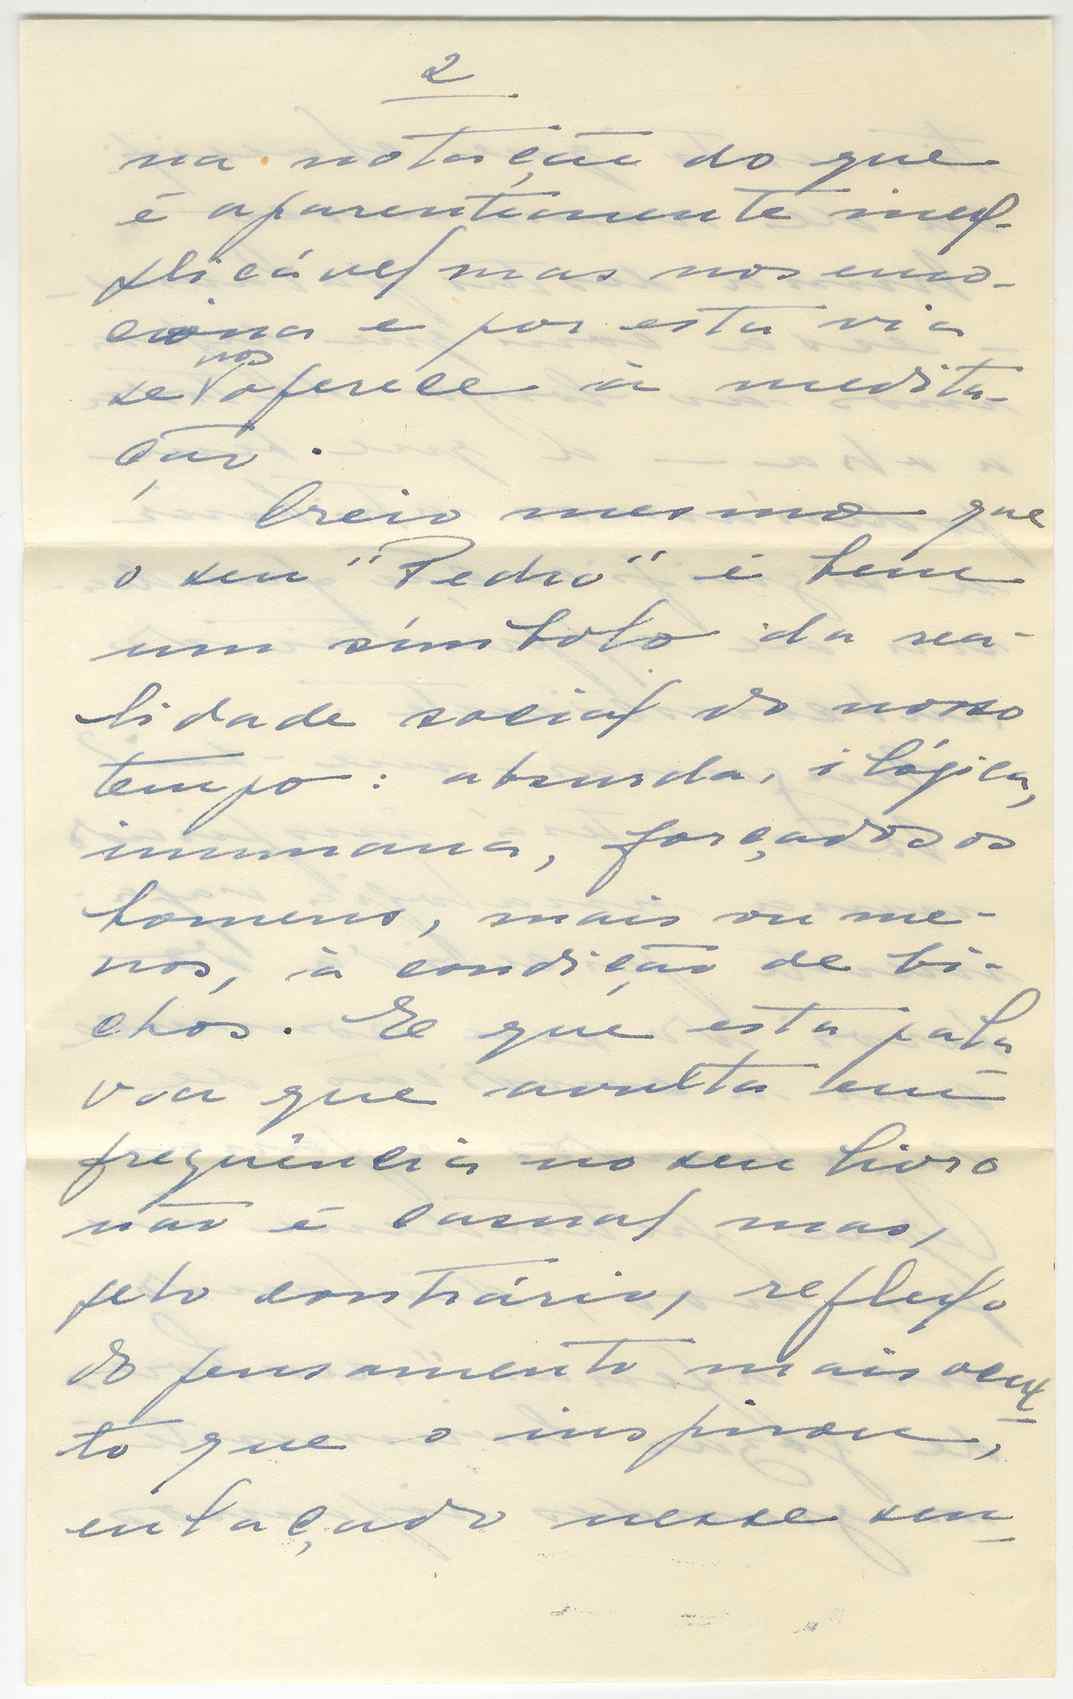 2
na notação do que
é aparentemente inex-
plicável mas nos emo-
ciona e por esta via
se nos oferece à medita-
ção.
Creio mesmo que
o seu "Pedro" é bem
um símbolo da rea-
lidade social do nosso
tempo: absurda, ilógica,
inumana, forçados os
homens, mais ou me-
nos, à condição de bi-
chos. E que esta pala
vra que avulta em
frequência no seu livro
não é casual mas,
pelo contrário, reflexo
do pensamento mais ocul
to que o inspirou,
enlaçado nesse sen